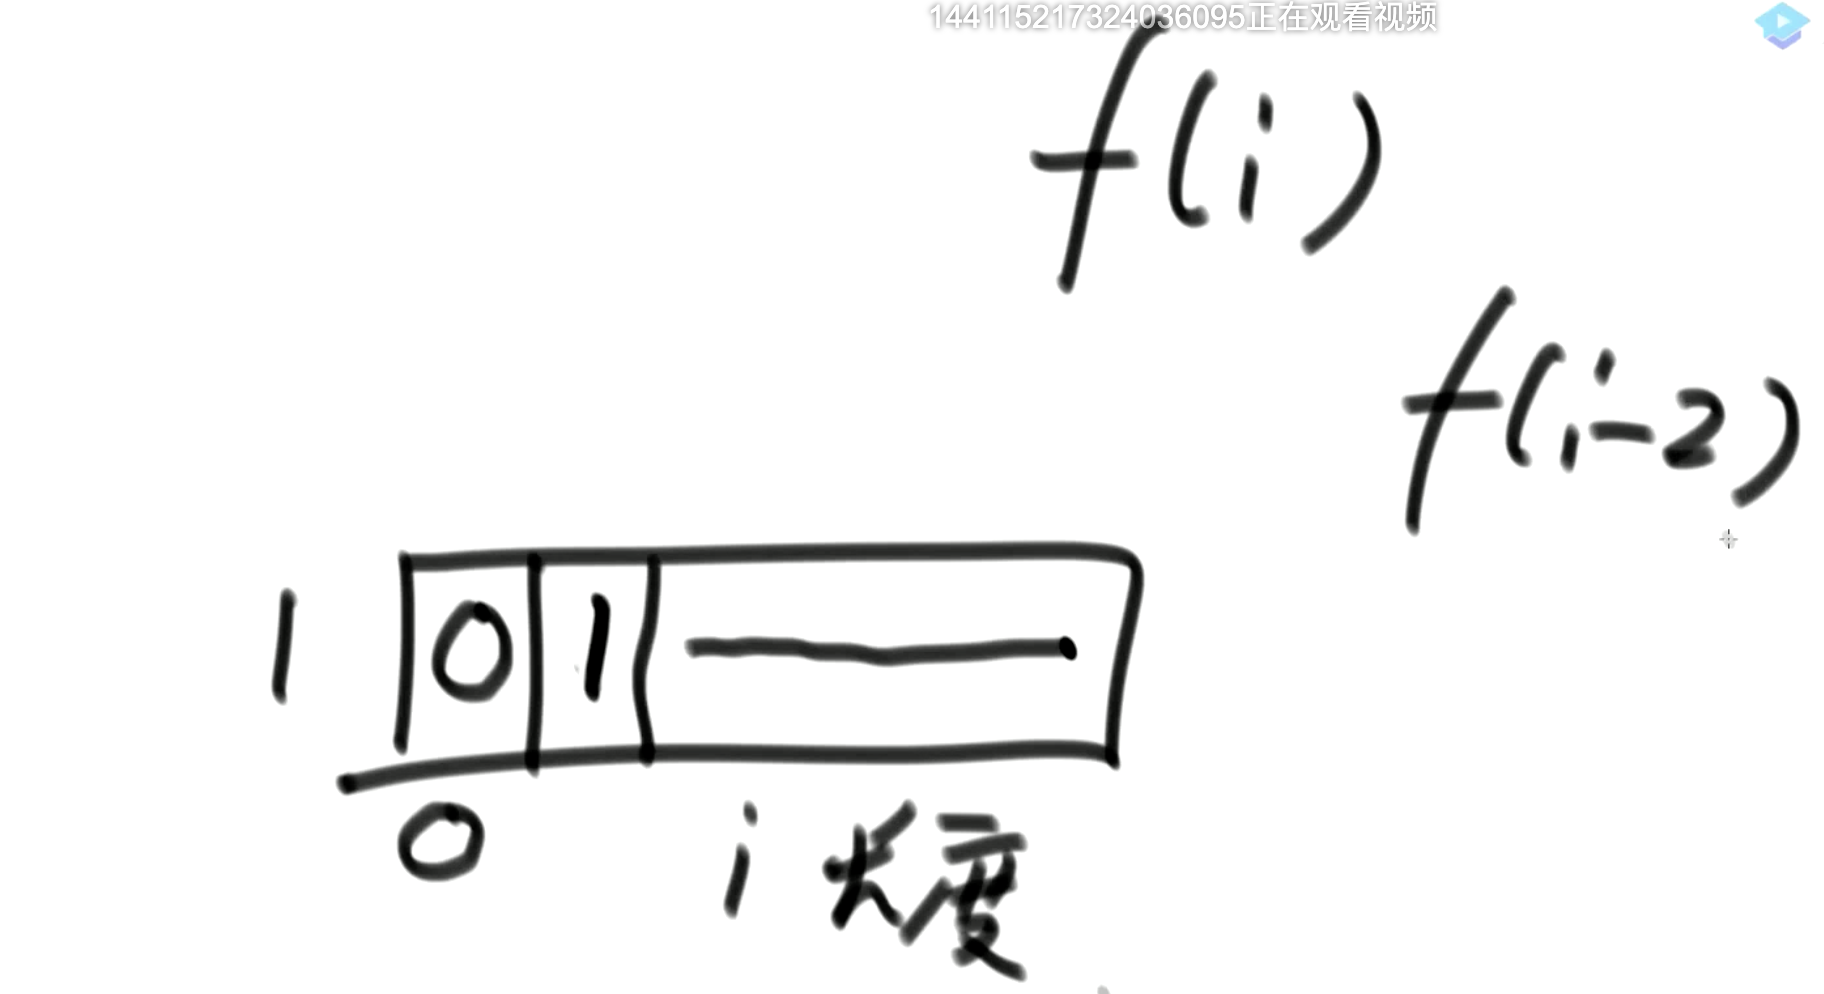 144115217324036095正在观看视频
f(i)
f(i-2)
1 0 1
0
i 长度